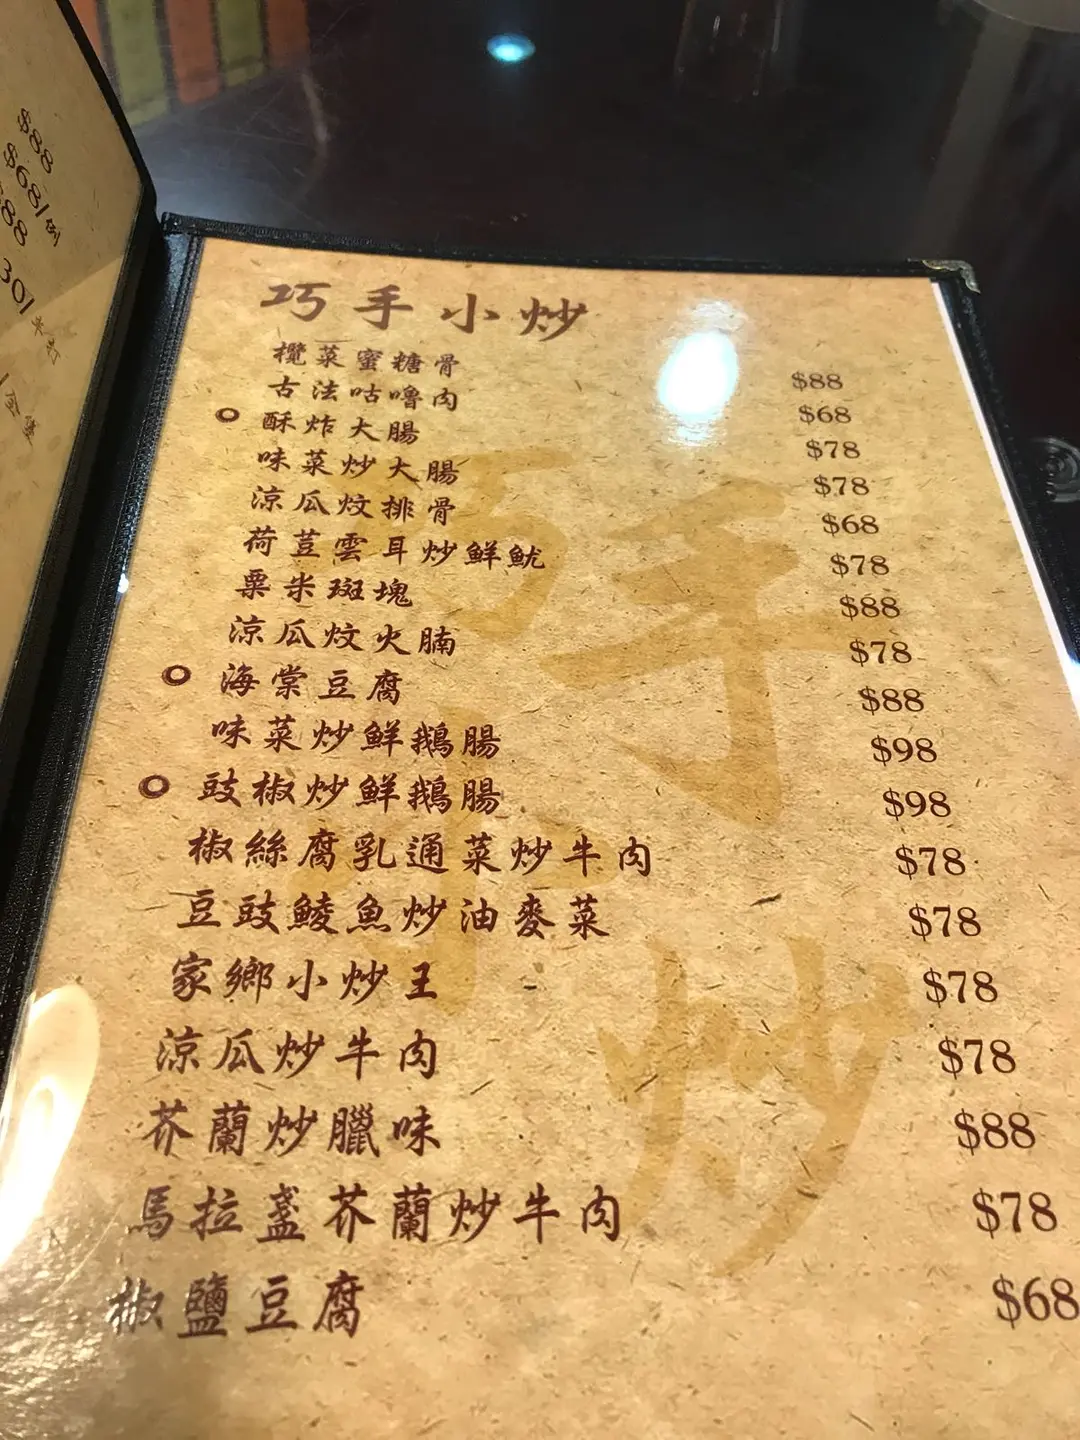 $88
$68/例
$88
301
巧手小炒
欖菜蜜糖骨 $88
古法咕嚕肉 $68
酥炸大腸 $78
味菜炒大腸 $78
涼瓜炆排骨 $68
荷荳雲耳炒鮮魷 $78
粟米斑塊 $88
涼瓜炆火腩 $78
海棠豆腐 $88
味菜炒鮮鵝腸 $98
豉椒炒鮮鵝腸 $98
椒絲腐乳通菜炒牛肉 $78
豆豉鯪魚炒油麥菜 $78
家鄉小炒王 $78
涼瓜炒牛肉 $78
芥蘭炒臘味 $88
馬拉盞芥蘭炒牛肉 $78
椒鹽豆腐 $68
巧手小炒